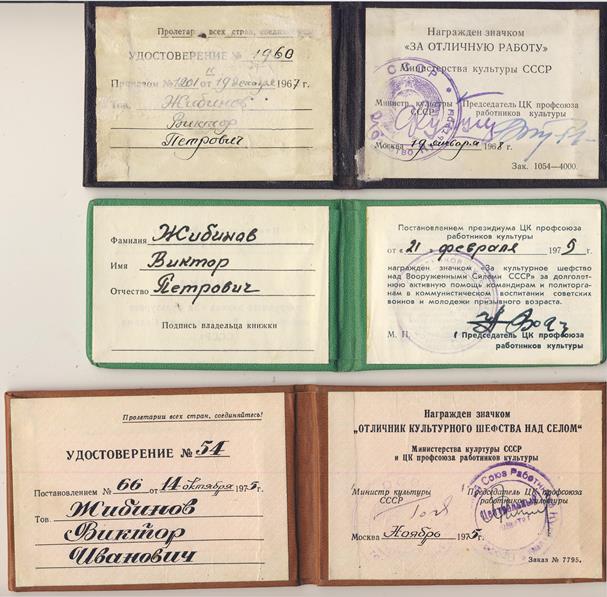 Пролетарии всех стран, соединяйтесь!
УДОСТОВЕРЕНИЕ № 1960
Приказом № 1201 от 19 декабря 1967 г.
Тов. Жибинов
Виктор
Петрович
Награжден значком
«ЗА ОТЛИЧНУЮ РАБОТУ»
Министерства культуры СССР
Министр культуры СССР
Председатель ЦК профсоюза работников культуры
Москва 19 января 1968 г.
Зак. 1054—4000.
Фамилия Жибинов
Имя Виктор
Отчество Петрович
Подпись владельца книжки
Постановлением президиума ЦК профсоюза
работников культуры
от «21» февраля 1975 г.
награжден значком «За культурное шефство
над Вооруженными Силами СССР» за долголет-
нюю активную помощь командирам и политорга-
нам в коммунистическом воспитании советских
воинов и молодежи призывного возраста.
М. П.
Председатель ЦК профсоюза
работников культуры
Пролетарии всех стран, соединяйтесь!
УДОСТОВЕРЕНИЕ № 54
Постановлением № 66 от 14 октября 1975 г.
Тов. Жибинов
Виктор
Иванович
Награжден значком
„ОТЛИЧНИК КУЛЬТУРНОГО ШЕФСТВА НАД СЕЛОМ“
Министерства культуры СССР
и ЦК профсоюза работников культуры
Министр культуры СССР
Председатель ЦК профсоюза работников культуры
Москва Ноябрь 1975 г.
Заказ № 7795.